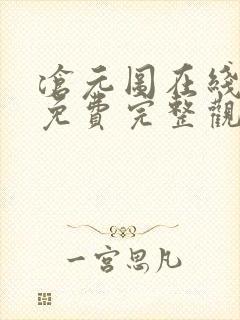 滄元图在线
免費完整觀
一宮思凡